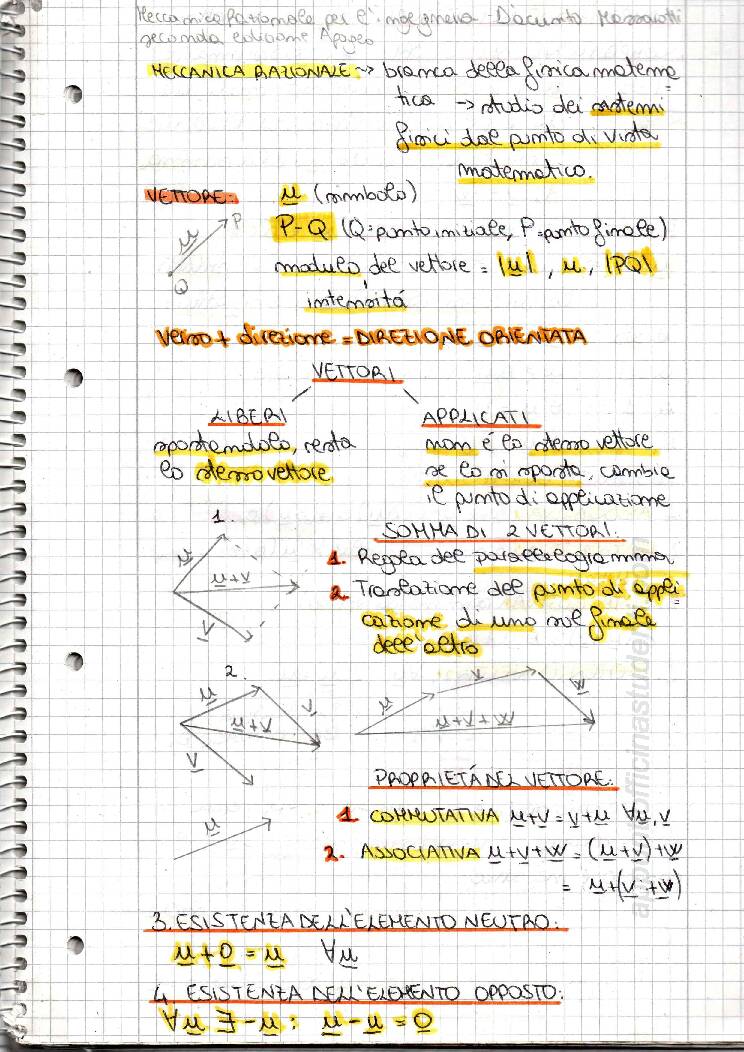 Meccanica Razionale per l'ingegneria - Dacunto Massarotti
seconda edizione Apogeo
MECCANICA RAZIONALE -> branca della fisica matema
tica -> studio dei sistemi
fisici dal punto di vista
matematico.
VETTORE: u (simbolo)
P-Q (Q=punto iniziale, P=punto finale)
modulo del vettore = |u|, u, |PQ|
intensitá
u
P
Q
verso + direzione = DIREZIONE ORIENTATA
VETTORI
LIBERI
spostandolo, resta
lo stesso vettore
APPLICATI
non é lo stesso vettore
se lo si sposta, cambia
il punto di applicazione
1.
u
u+v
v
SOMMA DI 2 VETTORI:
1. Regola del parallelogramma
2. Traslazione del punto di appli
cazione di uno sul finale
dell'altro
2.
u
v
u+v
v
u
v
w
u+v+w
PROPRIETÁ DEL VETTORE:
u
1. COMMUTATIVA u+v = v+u ∀u,v
2. ASSOCIATIVA u+v+w = (u+v)+w
= u+(v+w)
3. ESISTENZA DELL'ELEMENTO NEUTRO:
u+0 = u ∀u
4. ESISTENZA DELL'ELEMENTO OPPOSTO:
∀u ∃-u : u-u = 0